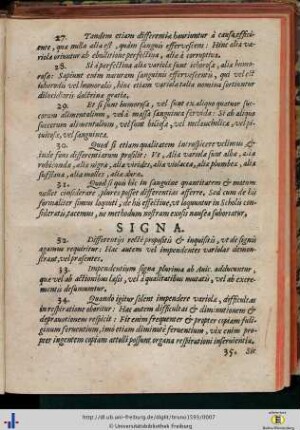 27. Tandem etiam differentia hauriuntur à causa effici-
ente, qua nulla alia est, quàm sanguis effervescens: Hinc alia va-
riola oriuntur ab ebullitione perfectiua, alia à corruptiua.
28. Si à perfectiua alia variola sunt ichorosa, alia humo-
rosa: Sapiunt enim naturam sanguinis efferuescentis, qui vel est
ichorosus vel humoralis, hinc etiam variola talia nomina sortiuntur
dilucidioris doctrina gratia.
29. Et si sunt humorosa, vel sunt ex aliquo quatuor suc-
corum alimentalium, vel à massa sanguinea fervida: Si ab aliquo
succorum alimentalium, vel sunt biliosa, vel melancholica, vel pi-
tuitosa, vel sanguinea.
30. Quod si etiam qualitatem introspicere velimus, &
inde fons differentiarum prosilit: Vt, Alia variola sunt alba, alia
rubicunda, alia nigra, alia virides, alia violacea, alia plumbea, alia
subtilia, alia molles, alia dura.
31. Quod si quis hîc in sanguine quantitatem & motum
vellet considerare, plures posset differentias afferre, Sed cum de his
formaliter simus loquuti, de his effectiuè, vt loquuntur in Scholis
consideratis, tacemus, ne methodum nostram exosis nausea suboriatur.
SIGNA.
32. Differentijs rectè propositis & inquisitis, vt de signis
agamus requiritur: Hac autem vel impendentes variolas demon-
strant, vel prasentes.
33. Impendentium signa plurima ab Auic. adducuntur,
qua vel ab actionibus lasis, vel à qualitatibus mutatis, vel ab excre-
mentis desumuntur.
34. Quando igitur solent impendere variola, difficultas
in respiratione oboritur: Hac autem difficultas & diminutionem &
depravationem respicit: Fit enim frequenter & propter copiam fuli-
ginum ferventium, imò etiam diminutè ferventium, vix enim pro-
pter ingentem copiam attolli possunt organa respirationi inservientia.
35. Sit
http://dl.ub.uni-freiburg.de/diglit/bruno1593/0007
© Universitätsbibliothek Freiburg